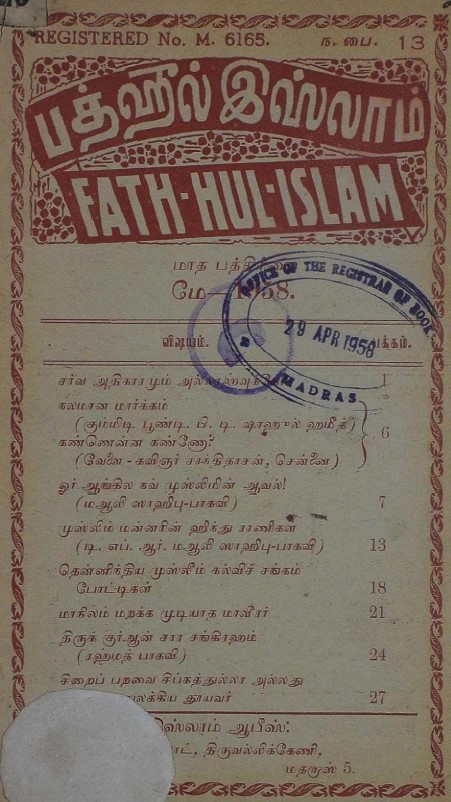 REGISTERED No. M. 6165. ந. பை. 13
பத்ஹுல் இஸ்லாம்
FATH-HUL-ISLAM
மாத பத்திரிகை
மே—1958.
OFFICE OF THE REGISTRAR OF BOOK
29 APR 1958
MADRAS
விஷயம். பக்கம்.
சர்வ அதிகாரமும் 1
கலமான மார்க்கம்
(கும்மிடி பூண்டி. பி. டி. ஷாஹுல் ஹமீத்) 6
கண்ணென்ன கண்ணே?
(வேலை-கவிஞர் சாந்திதாசன், சென்னை)
ஓர் ஆங்கில நவ் முஸ்லிமின் ஆவல்!
(மஆலி ஸாஹிபு-பாகவி) 7
முஸ்லிம் மன்னரின் ஹிந்து ராணிகள்
(டி. எப். ஆர். மஆலி ஸாஹிபு-பாகவி) 13
தென்னிந்திய முஸ்லீம் கல்விச் சங்கம்
போட்டிகள் 18
மாநிலம் மறக்க முடியாத மாவீரர் 21
திருக் குர்ஆன் சார சங்கிரஹம்
(ரஹ்மத் பாகவி) 24
சிறைப் பறவை சிப்கத்துல்லா அல்லது
தூயவர் 27
இஸ்லாம் ஆபீஸ்:
திருவல்லிக்கேணி,
மதறாஸ் 5.